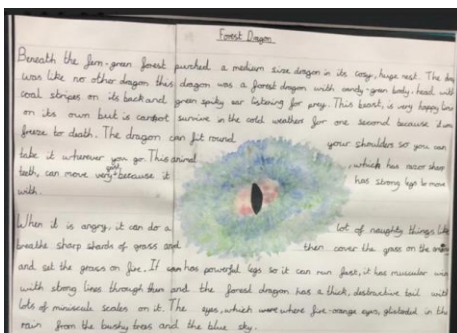 Forest Dragon
Beneath the fern-green forest purched a medium size dragon in its cosy, huge nest. The
was like no other dragon this dragon was a forest dragon with candy-green body, head with
coal stripes on its back and green spiky ear listening for prey. This beast, is very happy
on its own but is cannot survive in the cold weather for one second because
freeze to death. The dragon can fit round your shoulders so you can
take it wherever you go. This animal, which has razor sharp
teeth, can move very because it has strong legs to move
with.
When it is angry, it can do a lot of naughty things like
breathe sharp shards of grass and then cover the grass on the
and set the grass on fire. It has powerful legs so it can run fast, it has muscular
with strong lines through and the forest dragon has a thick, destructive tail with
lots of miniscule scales on it. The eyes, which were fire-orange eyes, glistoded in the
rain from the bushy trees and the blue sky.